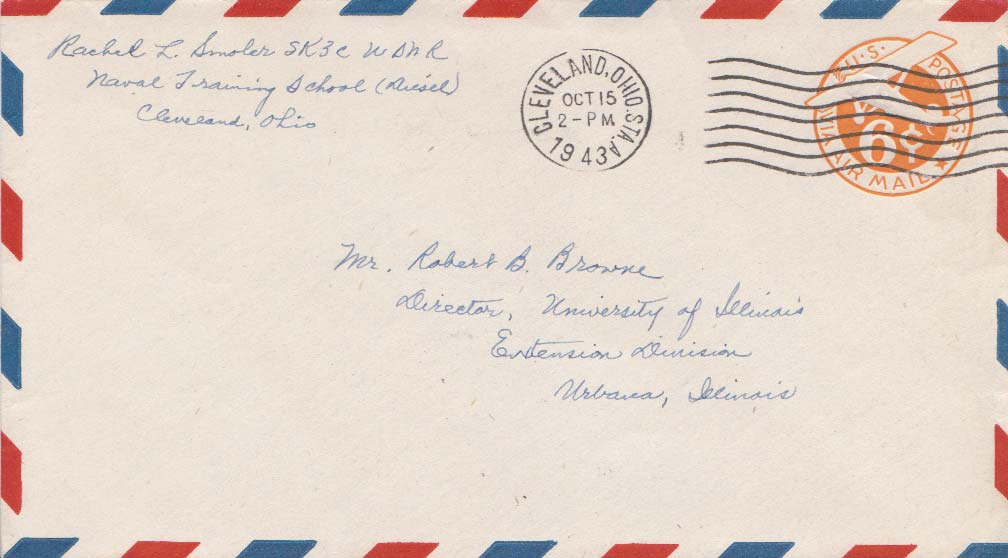 Rachel L. Smoler SK3C USNR
Naval Training School (Diesel)
Cleveland, Ohio
CLEVELAND, OHIO. STA. A
OCT 15
2-PM
1943
U.S. POSTAGE
6¢
VIA AIR MAIL
Mr. Robert B. Browne
Director, University of Illinois
Extension Division
Urbana, Illinois